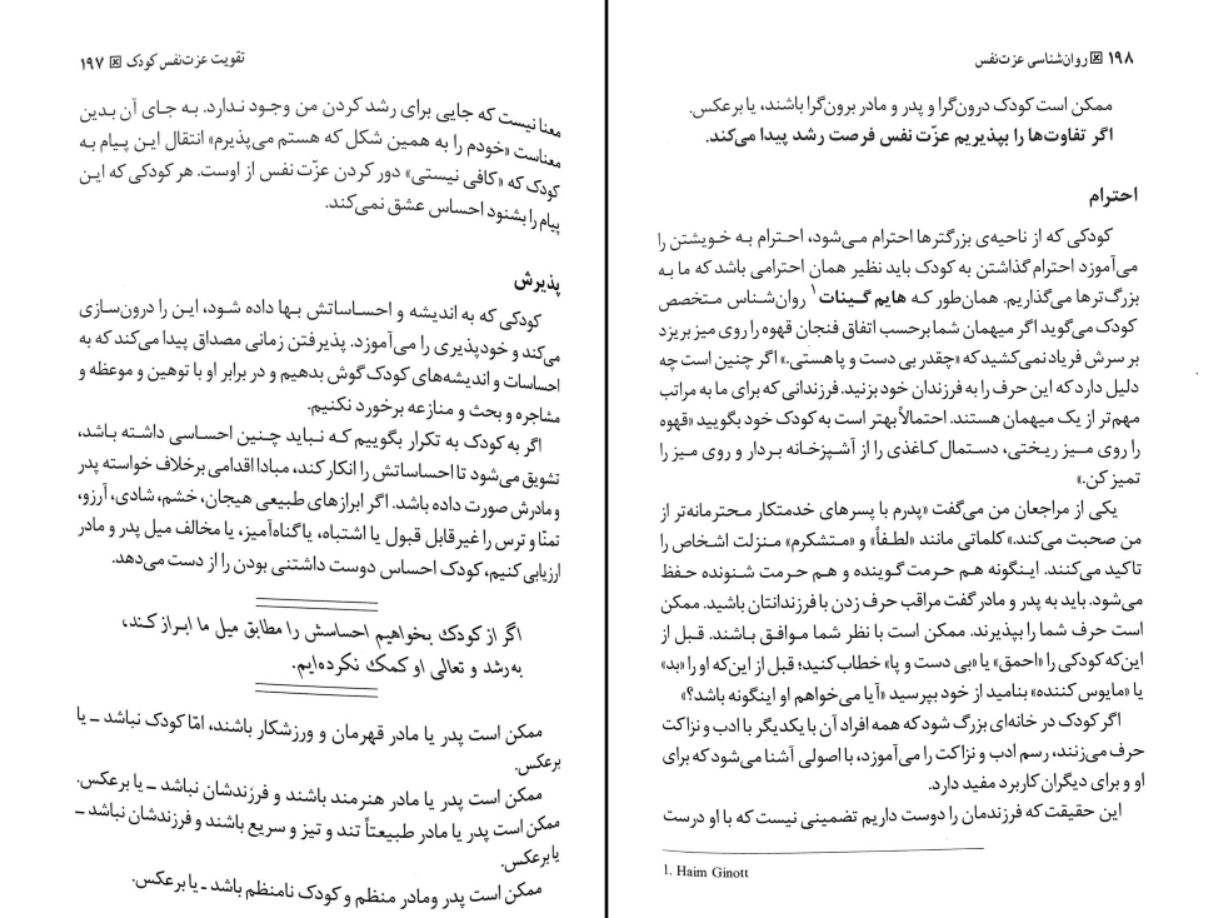 تقویت عزت‌نفس کودک ⊠ ۱۹۷
معنا نیست که جایی برای رشد کردن من وجود ندارد. به جای آن بدین
معناست «خودم را به همین شکل که هستم می‌پذیرم» انتقال این پیام به
کودک که «کافی نیستی» دور کردن عزّت نفس از اوست. هر کودکی که این
پیام را بشنود احساس عشق نمی‌کند.
پذیرش
کودکی که به اندیشه و احساساتش بها داده شود، این را درون‌سازی
می‌کند و خودپذیری را می‌آموزد. پذیرفتن زمانی مصداق پیدا می‌کند که به
احساسات و اندیشه‌های کودک گوش بدهیم و در برابر او با توهین و موعظه و
مشاجره و بحث و منازعه برخورد نکنیم.
اگر به کودک به تکرار بگوییم که نباید چنین احساسی داشته باشد،
تشویق می‌شود تا احساساتش را انکار کند، مبادا اقدامی برخلاف خواسته پدر
و مادرش صورت داده باشد. اگر ابرازهای طبیعی هیجان، خشم، شادی، آرزو،
تمنّا و ترس را غیرقابل قبول یا اشتباه، یا گناه‌آمیز، یا مخالف میل پدر و مادر
ارزیابی کنیم، کودک احساس دوست داشتنی بودن را از دست می‌دهد.
اگر از کودک بخواهیم احساسش را مطابق میل ما ابراز کند،
به رشد و تعالی او کمک نکرده‌ایم.
ممکن است پدر یا مادر قهرمان و ورزشکار باشند، امّا کودک نباشد ـ یا
برعکس.
ممکن است پدر یا مادر هنرمند باشند و فرزندشان نباشد ـ یا برعکس.
ممکن است پدر یا مادر طبیعتاً تند و تیز و سریع باشند و فرزندشان نباشد ـ
یا برعکس.
ممکن است پدر ومادر منظم و کودک نامنظم باشد ـ یا برعکس.
۱۹۸ ⊠ روان‌شناسی عزت‌نفس
ممکن است کودک درون‌گرا و پدر و مادر برون‌گرا باشند، یا برعکس.
اگر تفاوت‌ها را بپذیریم عزّت نفس فرصت رشد پیدا می‌کند.
احترام
کودکی که از ناحیه‌ی بزرگترها احترام می‌شود، احترام به خویشتن را
می‌آموزد احترام گذاشتن به کودک باید نظیر همان احترامی باشد که ما به
بزرگ‌ترها می‌گذاریم. همان‌طور که هایم گینات۱ روان‌شناس متخصص
کودک می‌گوید اگر میهمان شما برحسب اتفاق فنجان قهوه را روی میز بریزد
بر سرش فریاد نمی‌کشید که «چقدر بی دست و پا هستی.» اگر چنین است چه
دلیل دارد که این حرف را به فرزندان خود بزنید. فرزندانی که برای ما به مراتب
مهم‌تر از یک میهمان هستند. احتمالاً بهتر است به کودک خود بگویید «قهوه
را روی میز ریختی، دستمال کاغذی را از آشپزخانه بردار و روی میز را
تمیز کن.»
یکی از مراجعان من می‌گفت «پدرم با پسرهای خدمتکار محترمانه‌تر از
من صحبت می‌کند.» کلماتی مانند «لطفاً» و «متشکرم» منزلت اشخاص را
تاکید می‌کنند. اینگونه هم حرمت گوینده و هم حرمت شنونده حفظ
می‌شود. باید به پدر و مادر گفت مراقب حرف زدن با فرزندانتان باشید. ممکن
است حرف شما را بپذیرند. ممکن است با نظر شما موافق باشند. قبل از
این‌که کودکی را «احمق» یا «بی دست و پا» خطاب کنید؛ قبل از این‌که او را «بد»
یا «مایوس کننده» بنامید از خود بپرسید «آیا می‌خواهم او اینگونه باشد؟»
اگر کودک در خانه‌ای بزرگ شود که همه افراد آن با یکدیگر با ادب و نزاکت
حرف می‌زنند، رسم ادب و نزاکت را می‌آموزد، با اصولی آشنا می‌شود که برای
او و برای دیگران کاربرد مفید دارد.
این حقیقت که فرزندمان را دوست داریم تضمینی نیست که با او درست
1. Haim Ginott